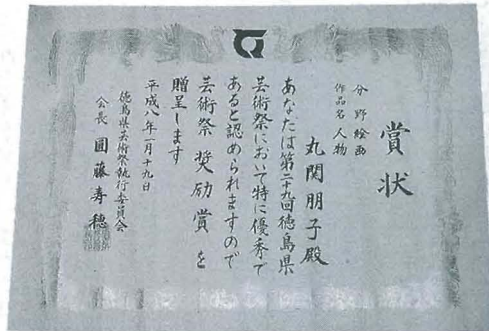 賞状
分野絵画
作品名人物
丸関朋子殿
あなたは第二十九回徳島県
芸術祭において特に優秀で
あると認められますので
芸術祭奨励賞を
贈呈します
平成八年一月十九日
徳島県芸術祭執行委員会
会長 圓藤寿穂